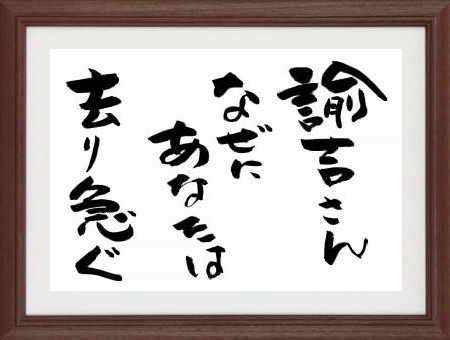 諭吉さん
なぜに
あなたは
去り急ぐ